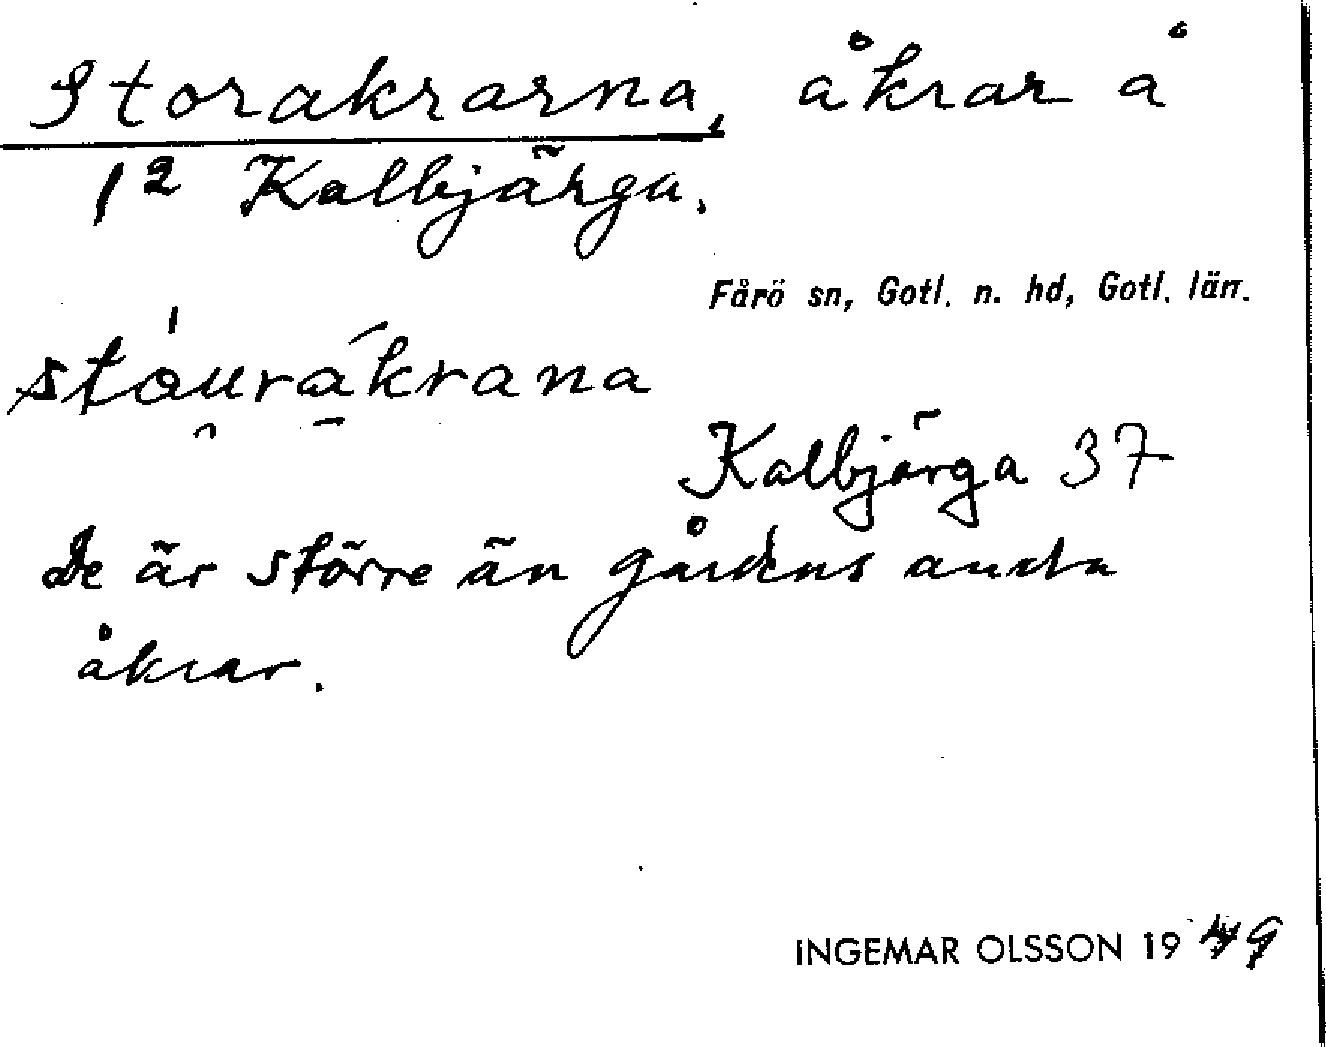 Storakrarna, åkrar å
1² Kalbjärga.
Fårö sn, Gotl. n. hd, Gotl. län.
stáurákrana
Kalbjärga 37
De är större än gårdens andra
åkrar.
INGEMAR OLSSON 1949